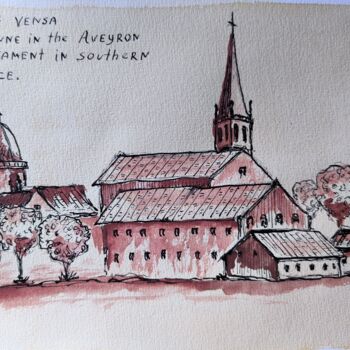 VENSA
NNE in the AVEYRON
TAMENT in SOUTHERN
CE.